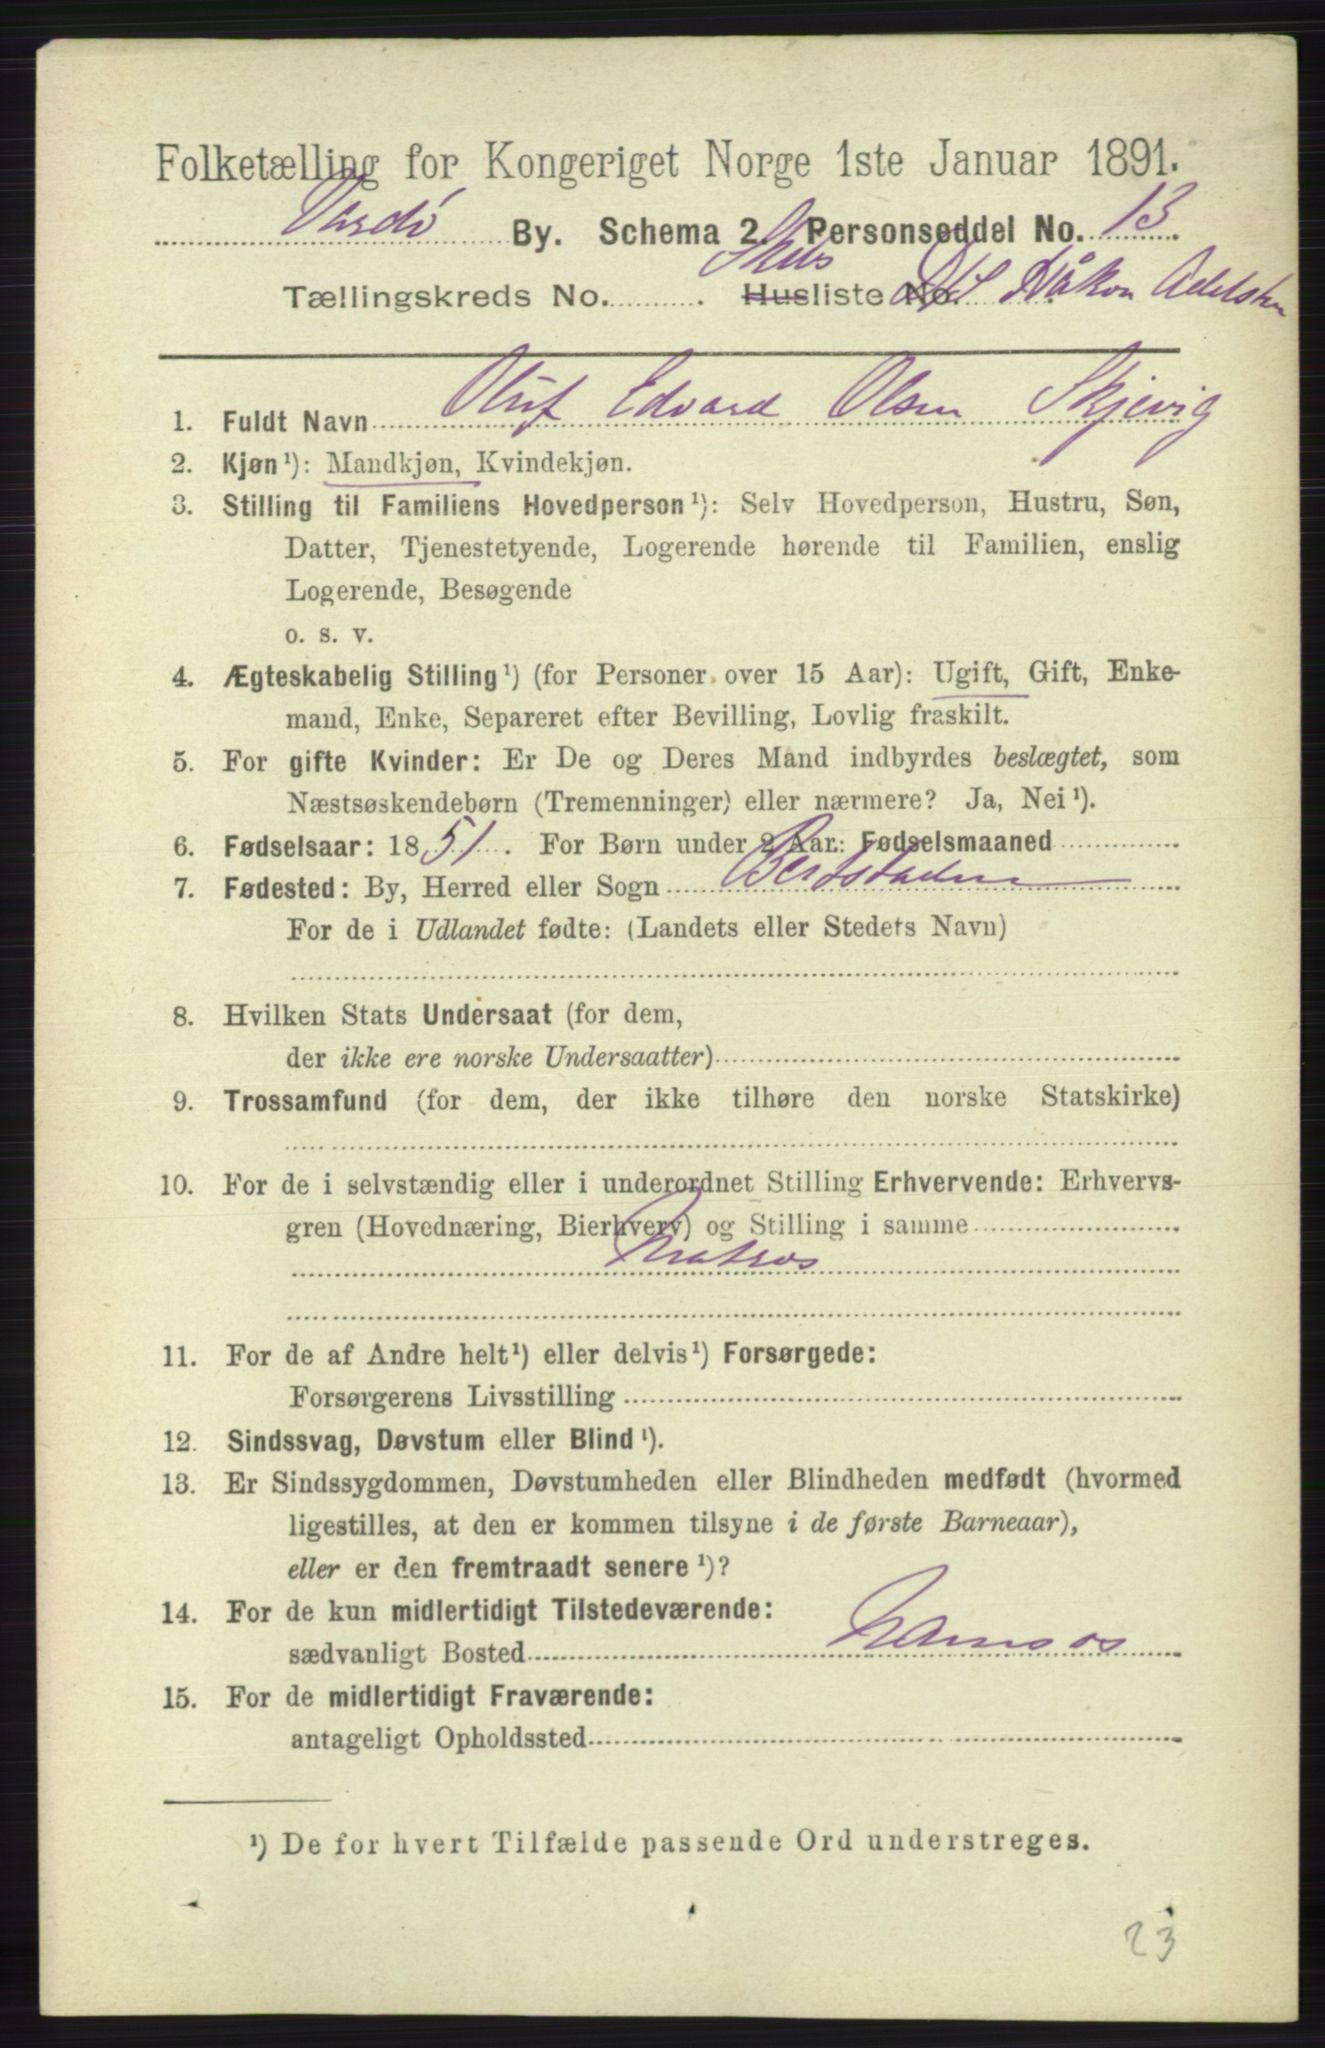 Folketælling for Kongeriget Norge 1ste Januar 1891.
Vardø By. Schema 2. Personseddel No. 13
Tællingskreds No. . Skibsliste No. D/S Håkon Adelsten
1. Fuldt Navn Oluf Edvard Olsen Skjevig
2. Kjøn¹): Mandkjøn, Kvindekjøn.
3. Stilling til Familiens Hovedperson¹): Selv Hovedperson, Hustru, Søn,
Datter, Tjenestetyende, Logerende hørende til Familien, enslig
Logerende, Besøgende
o. s. v.
4. Ægteskabelig Stilling¹) (for Personer over 15 Aar): Ugift, Gift, Enke-
mand, Enke, Separeret efter Bevilling, Lovlig fraskilt.
5. For gifte Kvinder: Er De og Deres Mand indbyrdes beslægtet, som
Næstsøskendebørn (Tremenninger) eller nærmere? Ja, Nei¹).
6. Fødselsaar: 1851. For Børn under 2 Aar: Fødselsmaaned
7. Fødested: By, Herred eller Sogn
For de i Udlandet fødte: (Landets eller Stedets Navn)
8. Hvilken Stats Undersaat (for dem,
der ikke ere norske Undersaatter)
9. Trossamfund (for dem, der ikke tilhøre den norske Statskirke)
10. For de i selvstændig eller i underordnet Stilling Erhvervende: Erhvervs-
gren (Hovednæring, Bierhverv) og Stilling i samme
Matros
11. For de af Andre helt¹) eller delvis¹) Forsørgede:
Forsørgerens Livsstilling
12. Sindssvag, Døvstum eller Blind¹).
13. Er Sindssygdommen, Døvstumheden eller Blindheden medfødt (hvormed
ligestilles, at den er kommen tilsyne i de første Barneaar),
eller er den fremtraadt senere¹)?
14. For de kun midlertidigt Tilstedeværende:
sædvanligt Bosted Namsos
15. For de midlertidigt Fraværende:
antageligt Opholdssted
¹) De for hvert Tilfælde passende Ord understreges.
23